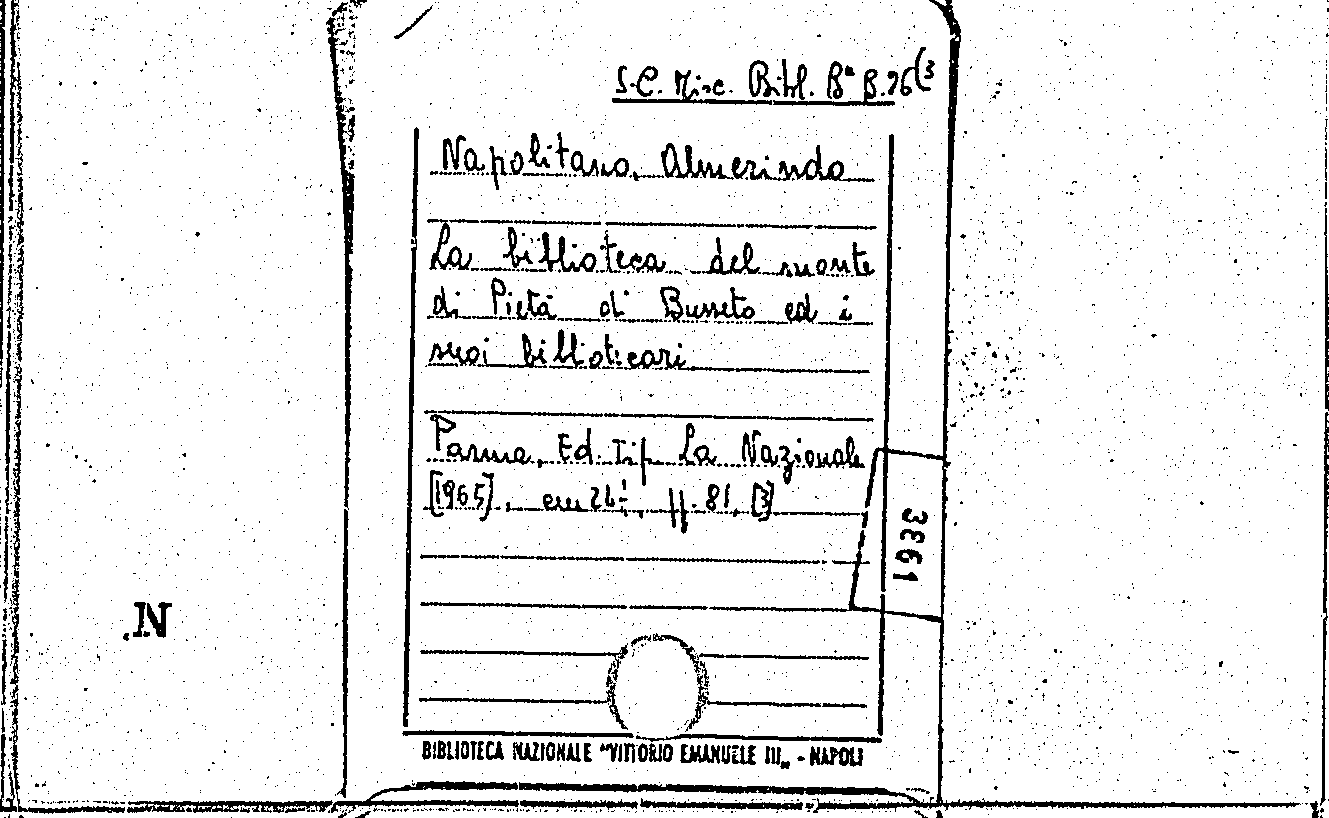 S.C. Misc. Bibl. Bª B.96(3
Napolitano, Almerindo
La biblioteca del monte
di Pietà di Busseto ed i
suoi bibliotecari.
Parma, Ed. Tip. La Nazionale
[1965], cm 24½, pp. 81, [3]
3361
.N
BIBLIOTECA NAZIONALE "VITTORIO EMANUELE III„ - NAPOLI